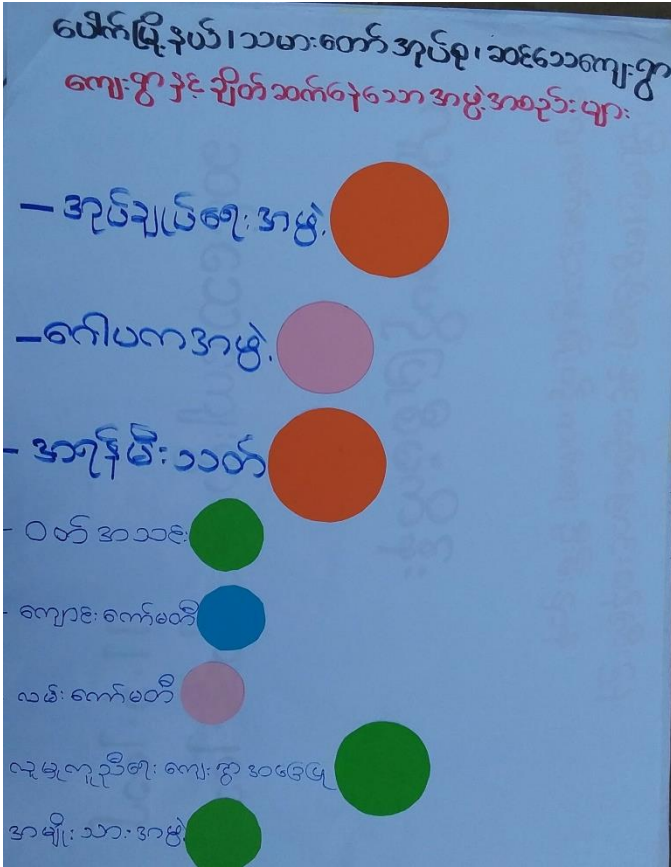 ပေါက်မြို့နယ်၊သမားတော်အုပ်စု၊ဆင်သေကျေးရွာ
ကျေးရွာနှင့်ချိတ်ဆက်နေသောအဖွဲ့အစည်းများ
- အုပ်ချုပ်ရေးအဖွဲ့
- ဂေါပကအဖွဲ့
- အရန်မီးသတ်
- ဝတ်အသင်း
- ကျောင်းကော်မတီ
လမ်းကော်မတီ
လူမှုကူညီရေးကျေးရွာအခြေပြု
အမျိုးသားအဖွဲ့